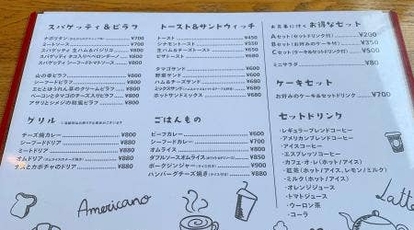 スパゲッティ&ピラフ
ナポリタン ¥700
ミートソース ¥800
スパゲッティ 生ハム&バジリコ ¥880
スパゲッティ シーフードトマトソース ¥880
山の幸ピラフ ¥880
エビピラフ ¥880
エビとほうれん草のクリームピラフ ¥880
ベーコンとタマゴのチーズ入りピラフ ¥880
アサリとシメジの和風ピラフ ¥880
グリル
チーズ焼カレー ¥800
シーフードドリア ¥880
ミートドリア ¥880
オムドリア ¥880
ナスとカボチャのドリア ¥880
トースト&サンドウィッチ
トースト ¥450
シナモントースト ¥550
生ハム&チーズトースト ¥650
ピザトースト ¥680
タマゴサンド
野菜サンド
ハム&チーズサンド
ミックスサンド
ホットサンドミックス
ごはんもの
ビーフカレー ¥600
シーフードカレー ¥700
オムライス ¥800
ダブルソースオムライス ¥850
ポークジンジャー ¥900
ハンバーグチーズ焼き ¥900
お食事に付く お得なセット
Aセット(セットドリンク付) ¥200
Bセット(お好みのケーキ付) ¥350
Cセット ¥500
ミニサラダ
ケーキセット
お好みのケーキ&セットドリンク ¥700
セットドリンク
・レギュラーブレンドコーヒー
・アメリカンブレンドコーヒー
・アイスコーヒー
・エスプレッソコーヒー
・カフェ・オ・レ(ホット/アイス)
・紅茶(ホット/アイス、レモン/ミルク)
・ミルク(ホット/アイス)
・オレンジジュース
・トマトジュース
・ウーロン茶
・コーラ
Americano
Latte